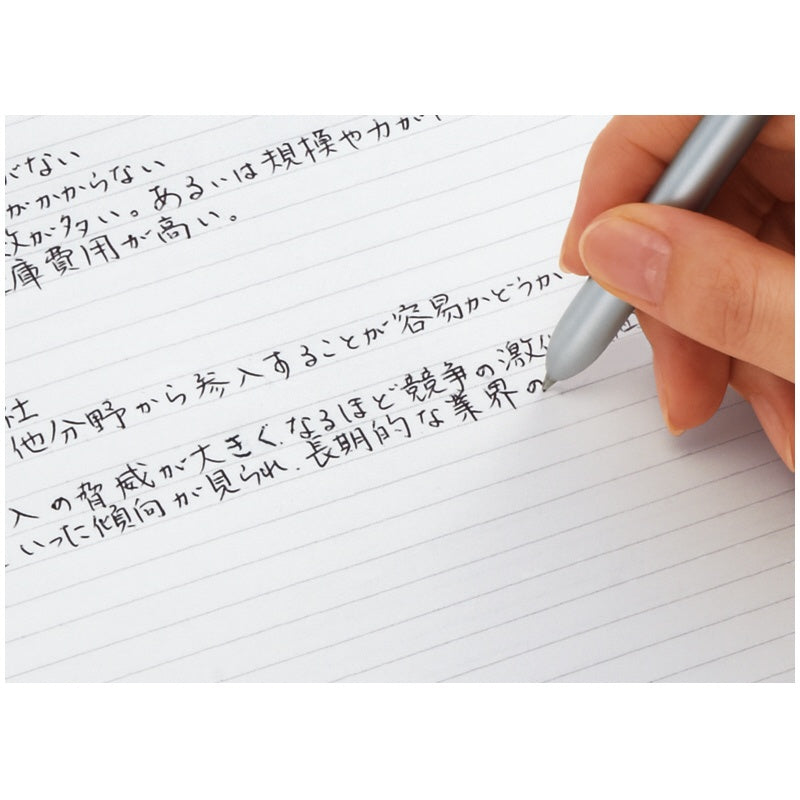 がない
がかからない
数が多い。あるいは規模や力が
庫費用が高い。
社
他分野から参入することが容易かどうか
入の脅威が大きく、なるほど競争の激化
いった傾向が見られ、長期的な業界の